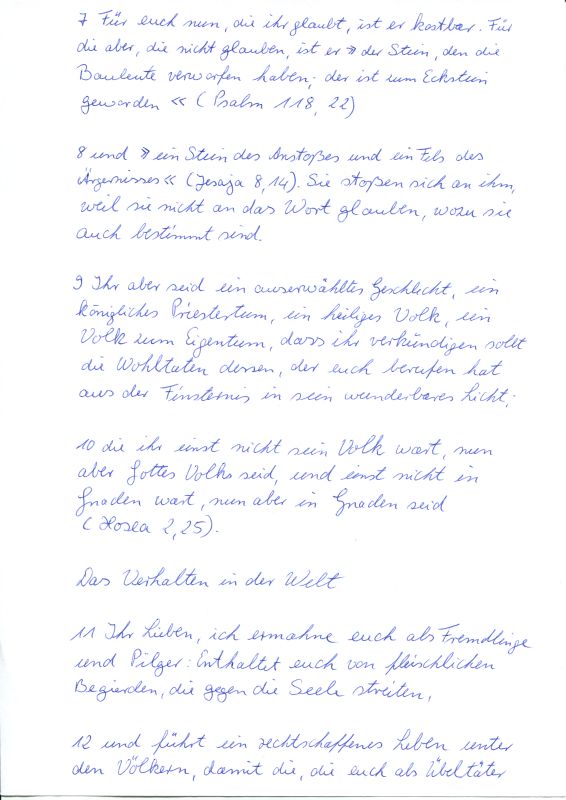 7 Für euch nun, die ihr glaubt, ist er kostbar. Für
die aber, die nicht glauben, ist er »der Stein, den die
Bauleute verworfen haben; der ist zum Eckstein
geworden « (Psalm 118, 22)
8 und » ein Stein des Anstoßes und ein Fels des
Ärgernisses « (Jesaja 8,14). Sie stoßen sich an ihm,
weil sie nicht an das Wort glauben, wozu sie
auch bestimmt sind.
9 Ihr aber seid ein auserwähltes Geschlecht, ein
königliches Priestertum, ein heiliges Volk, ein
Volk zum Eigentum, dass ihr verkündigen sollt
die Wohltaten dessen, der euch berufen hat
aus der Finsternis in sein wunderbares Licht;
10 die ihr einst nicht sein Volk wart, nun
aber Gottes Volk seid, und einst nicht in
Gnaden wart, nun aber in Gnaden seid
(Hosea 2,25).
Das Verhalten in der Welt
11 Ihr Lieben, ich ermahne euch als Fremdlinge
und Pilger: Enthaltet euch von fleischlichen
Begierden, die gegen die Seele streiten,
12 und führt ein rechtschaffenes Leben unter
den Völkern, damit die, die euch als Übeltäter